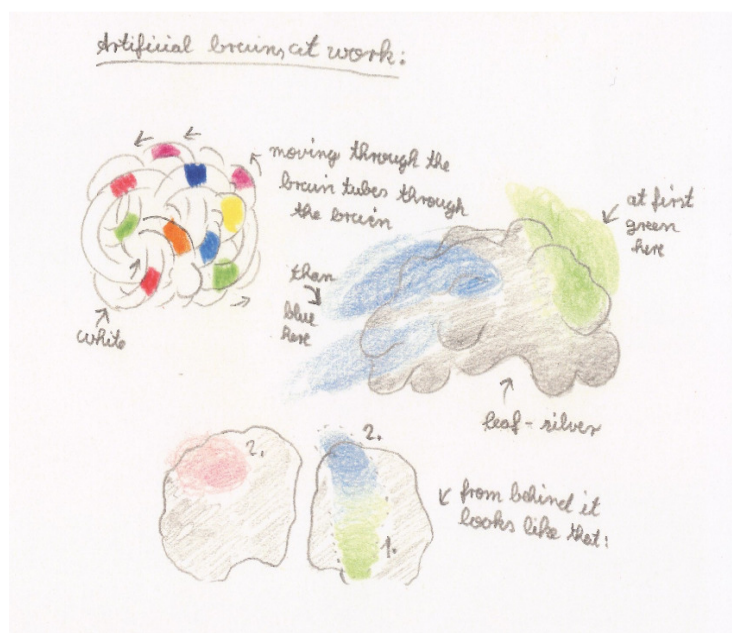 Artificial brains at work:
moving through the
brain tubes through
the brain
at first
green
here
than
blue
here
white
leaf-silver
2.
2.
1.
from behind it
looks like that: